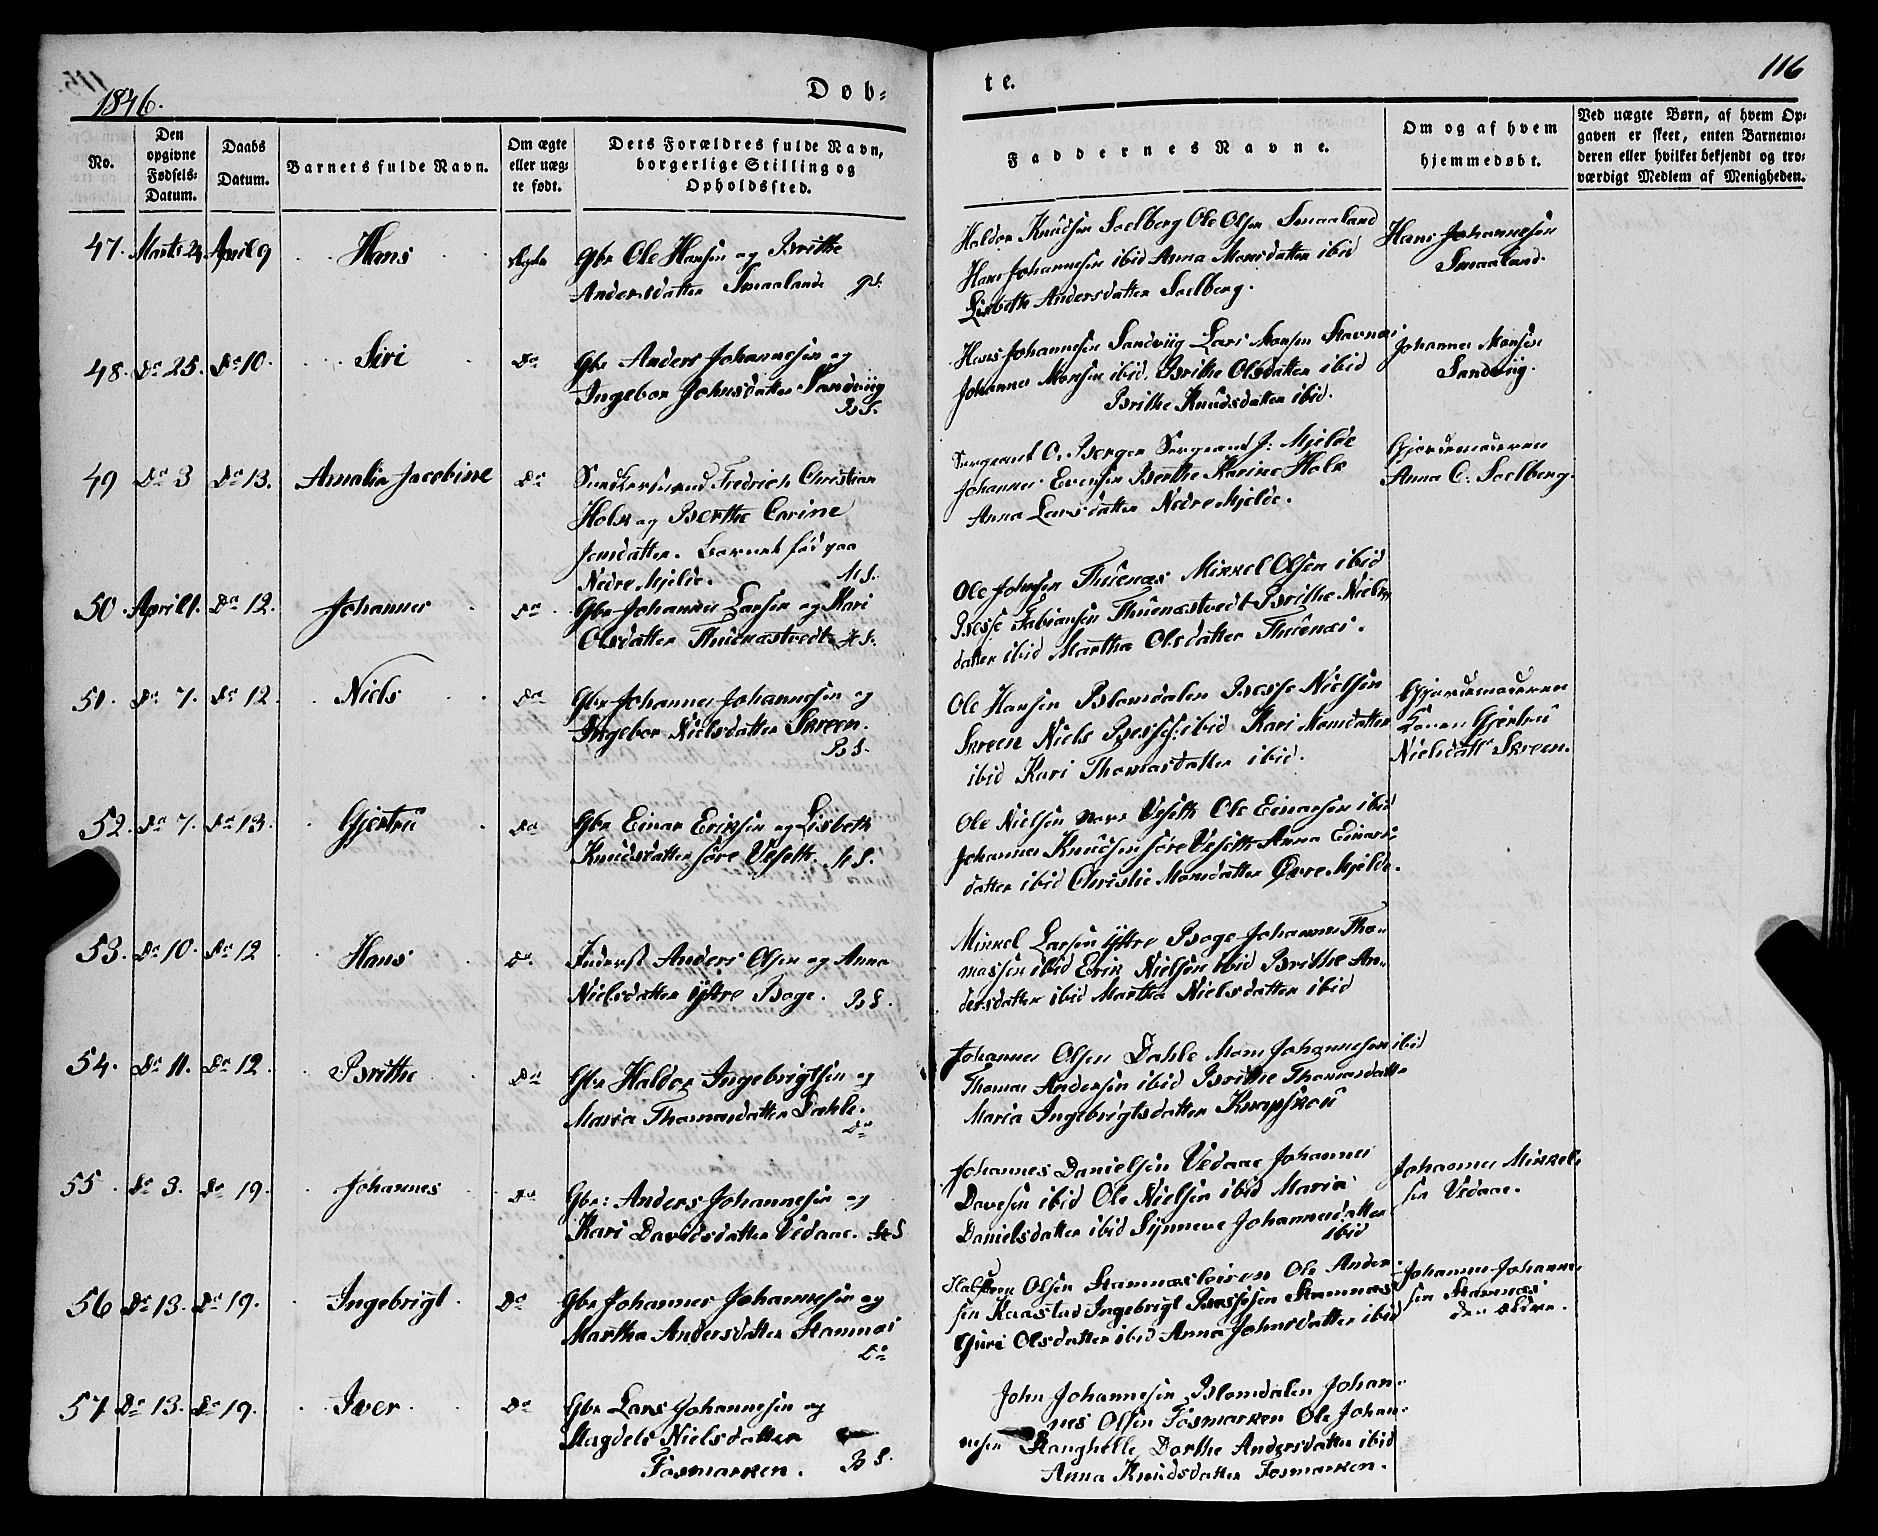 1846.
Døb-
te.
116
No.
Den opgivne Fødsels-Datum.
Daabs Datum.
Barnets fulde Navn.
Om ægte eller uægte født.
Dets Forældres fulde Navn, borgerlige Stilling og Opholdssted.
Faddernes Navne.
Om og af hvem hjemmedøbt.
Ved uægte Børn, af hvem Opgaven er skeet, enten Barnemoderen eller hvilket bekjendt og troværdigt Medlem af Menigheden.
47. Marts 24 April 9 Hans Ægte
Gbr Ole Hansen og Brithe
Andersdatter Smaaland
Haldor Knudsen Soelberg Ole Olsen Smaaland
Hans Johannesen ibid Anna Monsdatter ibid
Lisbeth Andersdatter Soelberg.
Hans Johannesen
Smaaland.
48. Do 25. Do 10. Siri Do
Gbr Anders Johannesen og
Ingebor Johnsdatter Sandviig
B S.
Hans Johannesen Sandviig Lars Monsen Stavnæs
Johannes Monsen ibid. Brithe Olsdatter ibid
Brithe Knudsdatter ibid.
Johannes Monsen
Sandviig.
49 Do 3 Do 13. Amalia Jacobine Do
Fredrich Christian
Holk og Berthe Carine
Jonsdatter. Barnet fød paa
Nedre Mjelde.
Sergeant O. Berger Sergeant J: Mjelde
Johannes Evensen Berthe Karine Holk
Anna Larsdatter Nedre Mjelde.
Gjordemoderen
Anna C. Soelberg.
50. April 1. Do 12. Johannes Do
Gbr Johannes Larsen og Kari
Olsdatter Thuenæstvedt
Ole Johnsen Thuenæs Mikkel Olsen ibid
Besse Fabiansen Thuenæstvedt Brithe Niels
datter ibid Martha Olsdatter Thuenæs.
51. Do 7. Do 12. Niels Do
Gbr Johannes Johannesen og
Ingebor Nielsdatter Skreen.
B S.
Ole Hansen Blomdalen Besse Nielsen
Skreen Niels Besses: ibid Kari Monsdatter
ibid Kari Thomasdatter ibid.
Gjordemoderen
Konen Gjertru
Nielsdatt Skreen.
52. Do 7. Do 13. Gjertru Do
Gbr Einar Eriksen og Lisbeth
Knudsdatter søre Veseth. H S.
Ole Nielsen nore Veseth Ole Einarsen ibid
Johannes Knudsen søre Veseth Anna Einars
datter ibid Christie Monsdatter Øvre Mjelde.
53. Do 10. Do 12 Hans Do
Inderst Anders Olsen og Anna
Nielsdatter Yttre Boge. B S.
Mikkel Larsen Yttre Boge Johannes Tho-
massen ibid Erik Nielsen ibid Brithe An-
dersdatter ibid Martha Nielsdatter ibid
54. Do 11. Do 12. Brithe Do
Gbr Haldor Ingebrigtsen og
Maria Thomasdatter Dahle.
Do
Johannes Olsen Dahle Mons Johannesen ibid
Thomas Andersen ibid Brithe Thomasdatter
Maria Ingebrigtsdatter Knapskou
55. Do 3. Do 19. Johannes Do
Gbr: Anders Johannesen og
Kari Davidsdatter Vedaae. H S
Johannes Danielsen Vedaae Johannes
Davesen ibid Ole Nielsen ibid Maria
Danielsdatter ibid Synneve Johannesdatter
ibid
Johannes Mikkel
sen Vedaae.
56 Do 13. Do 19. Ingebrigt. Do
Gbr Johannes Johannesen og
Martha Andersdatter Stamnæs
Do
Halsteen Olsen Stamnæsleiren Ole Ander-
sen Kaastad Ingebrigt Bessesen Stamnæs
Guri Olsdatter ibid Anna Johnsdatter ibid
Johannes Johannes
sen Stamnæs
den ældre.
57 Do 13. Do 19. Iver Do
Gbr Lars Johannesen og
Magdele Nielsdatter
Fosmarken. B S.
John Johannesen Blomdalen Johan-
nes Olsen Fosmarken Ole Johan-
nesen Stanghelle, Dorthe Andersdatter ibid
Anna Knudsdatter Fosmarken.